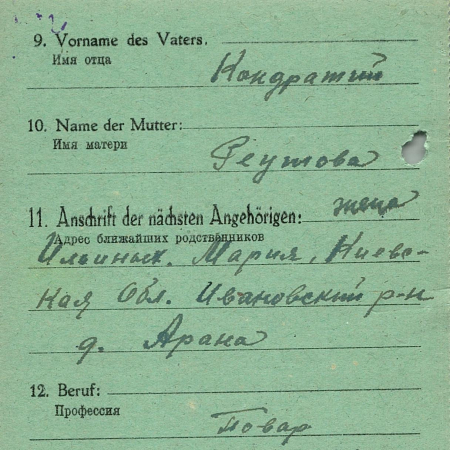 9. Vorname des Vaters.
Имя отца
Кондратий
10. Name der Mutter:
Имя матери
Реутова
11. Anschrift der nächsten Angehörigen: жена
Адрес ближайших родственников
Ильиных. Мария, Киев-
кая Обл. Ивановский р-н
д. Арана
12. Beruf:
Профессия
Повар